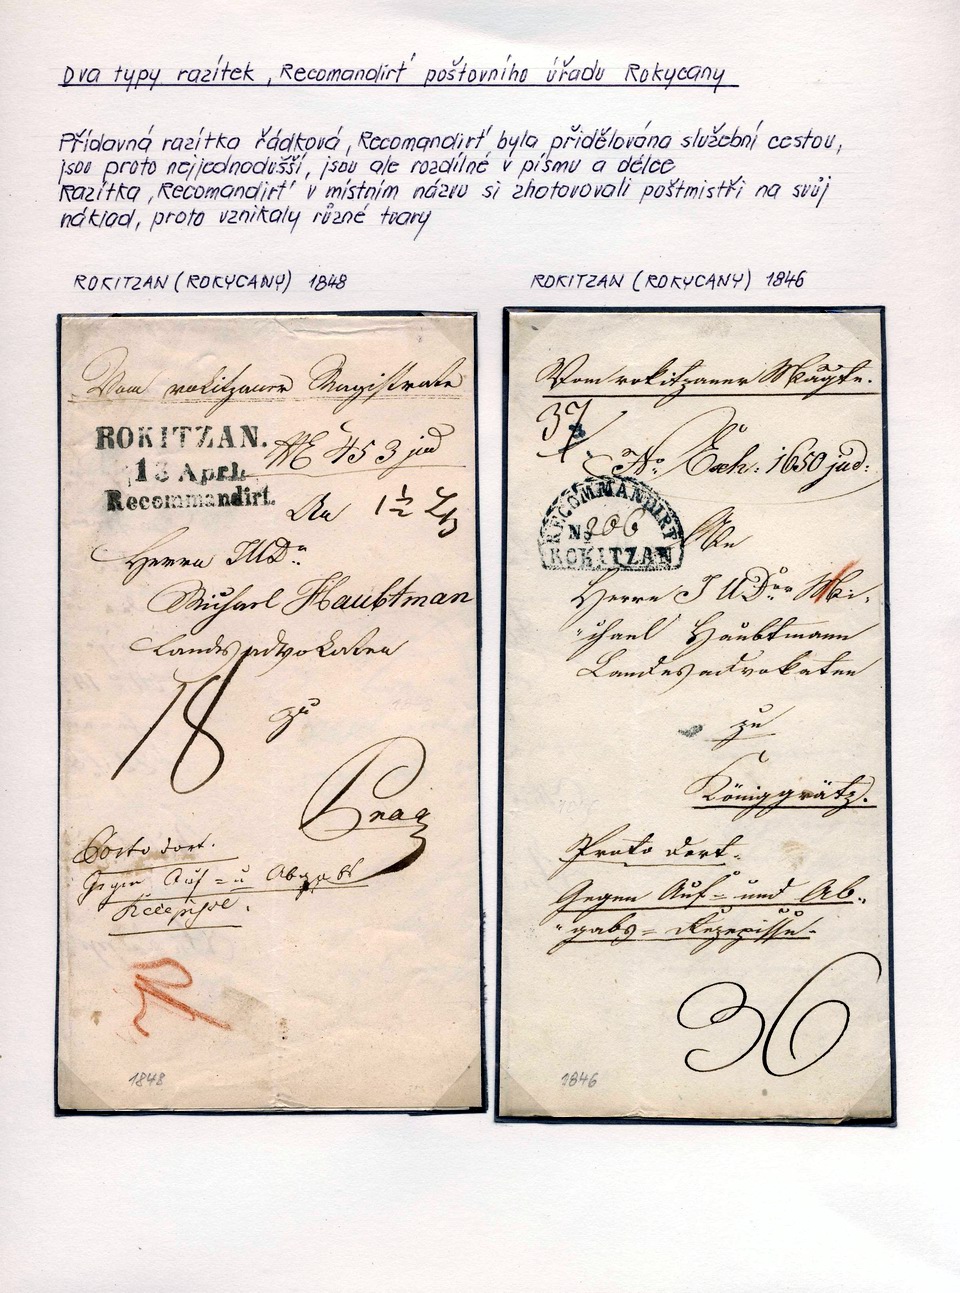 Dva typy razítek ‚Recomandirt' poštovního úřadu Rokycany
Přídavná razítka řádková ‚Recomandirt' byla přidělována služební cestou,
jsou proto nejjednodušší, jsou ale rozdílné v písmu a délce
Razítka ‚Recomandirt' v místním názvu si zhotovovali poštmistři na svůj
náklad, proto vznikaly různé tvary
ROKITZAN (ROKYCANY) 1848
Vom rokitzaner Magistrate
ROKITZAN.
13 April.
Recommandirt.
453 jud
An 1½
Herrn JUDr
Michael Haubtman
Landesadvokaten
18 zu
Prag
Porto dort.
Gegen Auf = u Abgabs
Recepisse.
1848
ROKITZAN (ROKYCANY) 1846
Vom rokitzaner Magte.
37
No Exh: 1650 jud:
RECOMMANDIRT
No 206
ROKITZAN
An
Herrn JUDor Mi-
chael Haubtmann
Landesadvokaten
zu
Königgrätz.
Proto dort.
Gegen Auf= und Ab-
gabs= Rezepisse.
36
1846